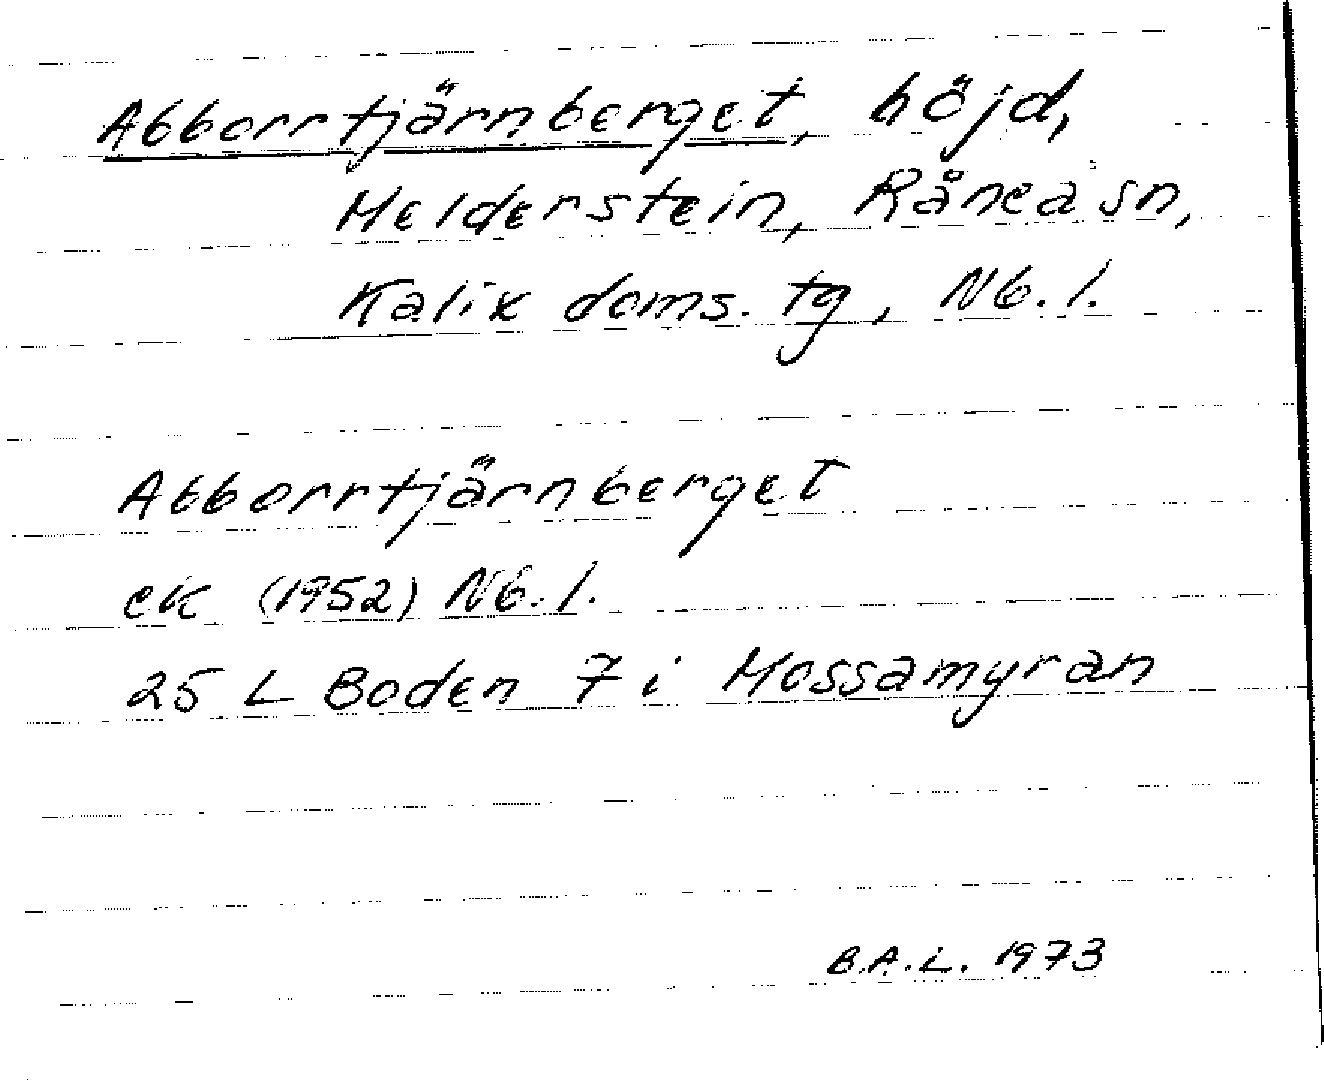 Abborrtjärnberget, höjd,
Melderstein, Råneå sn,
Kalix doms. tg, Nb. l.
Abborrtjärnberget
ek (1952) Nb. l.
25 L Boden 7 i Mossamyran
B.A.L. 1973